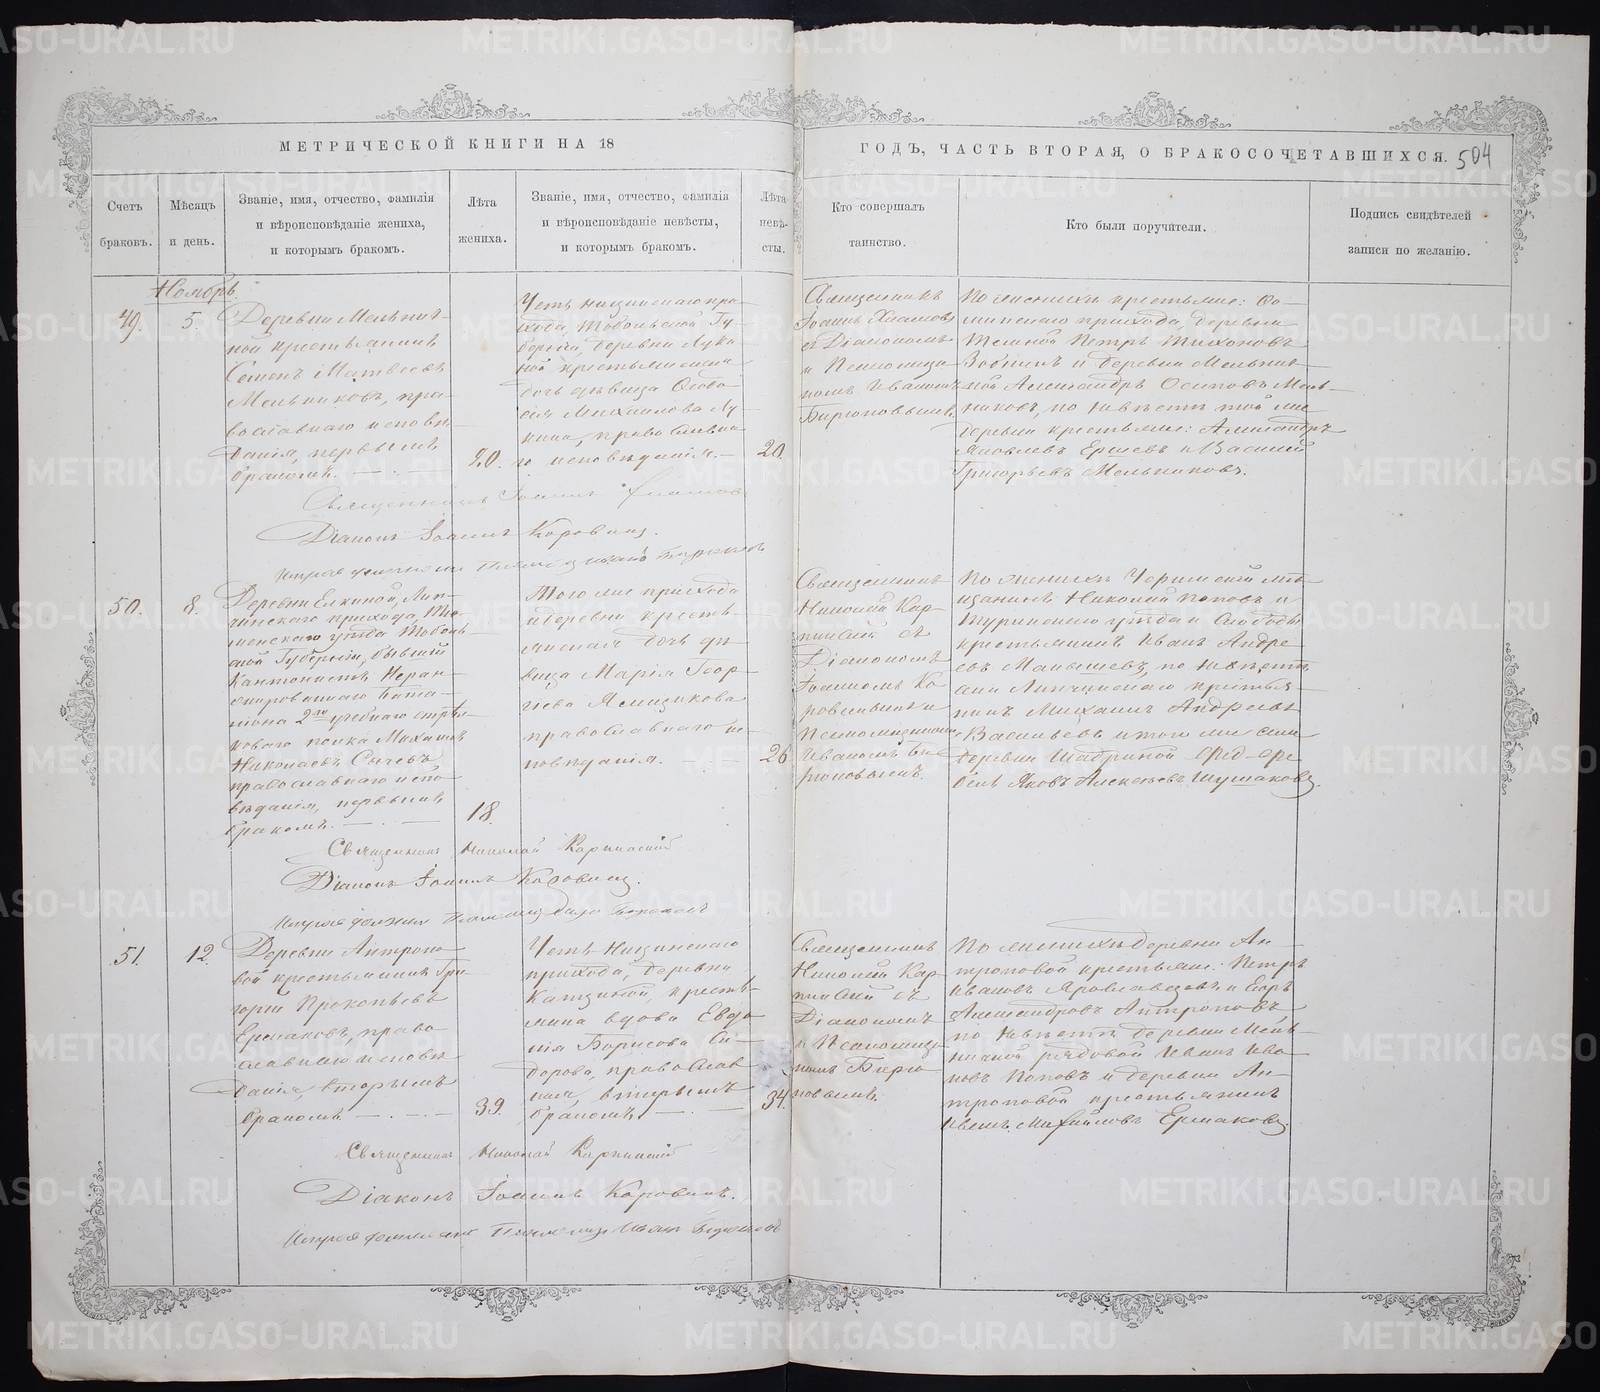 МЕТРИЧЕСКОЙ КНИГИ НА 18
ГОДЪ, ЧАСТЬ ВТОРАЯ, О БРАКОСОЧЕТАВШИХСЯ.
504
Счетъ
браковъ.
Мѣсяцъ
и день.
Званіе, имя, отчество, фамилія
и вѣроисповѣданіе жениха,
и которымъ бракомъ.
Лѣта
жениха.
Званіе, имя, отчество, фамилія
и вѣроисповѣданіе невѣсты,
и которымъ бракомъ.
Лѣта
невѣ-
сты.
Кто совершалъ
таинство.
Кто были поручители.
Подпись свидѣтелей
записи по желанію.
Ноябрь.
49.
5.
Деревни Мельнич-
ной крестьянинъ
Семенъ Матвеевъ
Мельниковъ, пра-
вославнаго исповѣ-
данія, первымъ
бракомъ.
20.
Усть-Ницинскаго при-
хода, Тобольской Гу-
берніи, деревни Луки-
ной крестьянская
дочь дѣвица
Михаилова Лу-
кина, православна-
го исповѣданія.
20.
Священникъ
Іоаннъ
съ Діакономъ
и Псаломщи-
комъ Иваномъ
Бирюковымъ.
По женихѣ крестьяне:
минскаго прихода, деревни
Темной Петръ Тихоновъ
и деревни Мельнич-
ной Александръ Осиповъ Мель-
никовъ, по невѣстѣ той же
деревни крестьяне: Александръ
Яковлевъ Ершевъ и Василій
Григорьевъ Мельниковъ.
Священникъ Іоаннъ
Діаконъ Іоаннъ Коровинъ.
50.
8.
Деревни Елкиной, Лип-
чинскаго прихода, Тю-
менскаго уѣзда Тоболь-
ской Губерніи, бывшій
Кантонистъ Неран-
жированнаго бата-
ліона 2го учебнаго стрѣл-
коваго полка Михаилъ
Николаевъ Сычевъ
православнаго испо-
вѣданія, первымъ
бракомъ.
18.
Того же прихода
и деревни кресть-
янская дочь дѣ-
вица Марія Геор-
гіева Ямщикова
православнаго ис-
повѣданія.
26
Священникъ
Николай Кар-
пинскій съ
Діакономъ
Іоанномъ Ко-
ровинымъ и
Псаломщикомъ
Иваномъ Би-
рюковымъ.
По женихѣ мѣ-
щанинъ Николай Поповъ и
Туринскаго уѣзда и Слободы
крестьянинъ Иванъ Андре-
евъ по невѣстѣ
Липчинскаго крестья-
нинъ Михаилъ Андреевъ
Васильевъ и того же села
деревни Шадриной
Яковъ Алексѣевъ Шушаковъ.
Священникъ Николай Карпинскій
Діаконъ Іоаннъ Коровинъ.
51.
12.
Деревни Антропо-
вой крестьянинъ Гри-
горій Прокопьевъ
Ермаковъ, право-
славнаго исповѣ-
данія, вторымъ
бракомъ
39.
Усть-Ницинскаго
прихода, деревни
кресть-
янина вдова Евдо-
кія Борисова Си-
дорова, православ-
ная, вторымъ
бракомъ.
34.
Священникъ
Николай Кар-
пинскій съ
Діакономъ
и Псаломщи-
комъ Бирю-
ковымъ.
По женихѣ деревни Ан-
троповой крестьяне: Петръ
Ивановъ Ярославцовъ и Егоръ
Александровъ Антроповъ
по невѣстѣ деревни Мель-
ничной рядовой Иванъ Ива-
новъ Поповъ и деревни Ан-
троповой крестьянинъ
Иванъ Михайловъ Ермаковъ.
Священникъ Николай Карпинскій
Діаконъ Іоаннъ Коровинъ.
METRIKI.GASO-URAL.RU